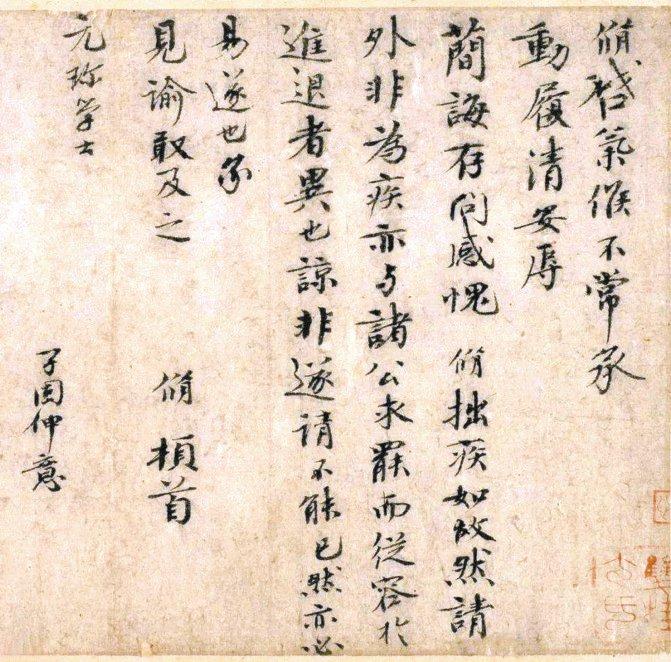 脩啓氣候不常承
動履清安辱
簡誨存問感愧 脩拙疾如故然請
外非為疾亦与諸公求罷而從容於
進退者異也諒非遂請不能已然亦必
易遂也承
見諭敢及之
脩 頓首
元珍學士
子固仲意